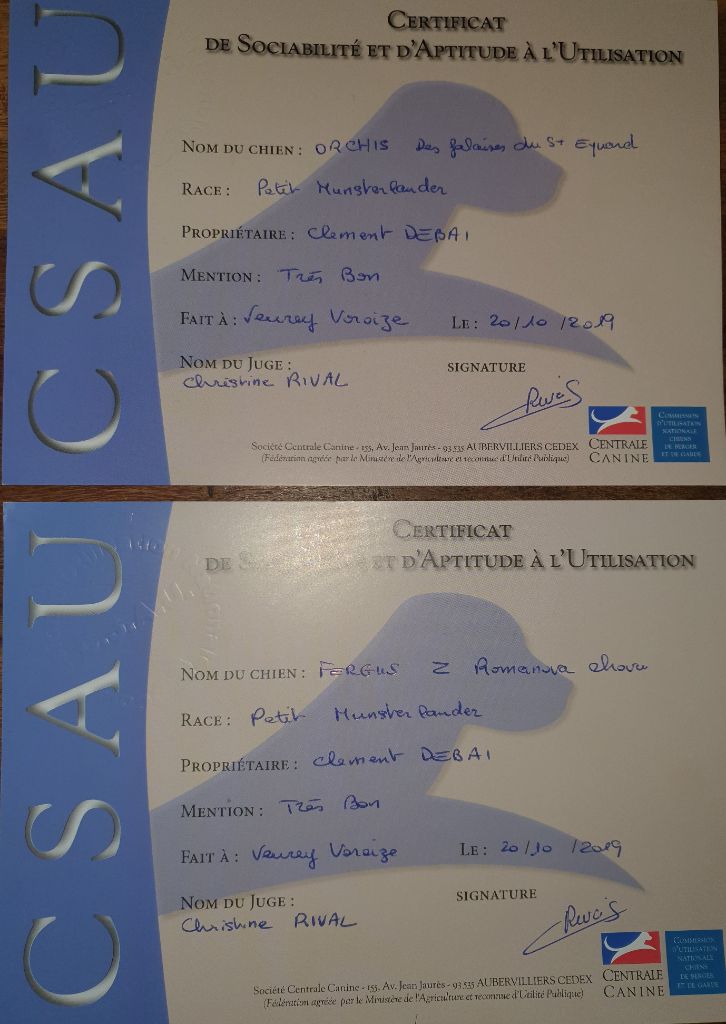 CSAU
CERTIFICAT
DE SOCIABILITÉ ET D'APTITUDE À L'UTILISATION
NOM DU CHIEN : ORCHIS Des falaises du St Eynard
RACE : Petit Munsterlander
PROPRIÉTAIRE : Clement DEBAI
MENTION : Très Bon
FAIT À : Veurey Voroize LE : 20/10/2019
NOM DU JUGE : SIGNATURE
Christine RIVAL
CENTRALE
CANINE
COMMISSION
D'UTILISATION
NATIONALE
CHIENS
DE BERGER
ET DE GARDE
Société Centrale Canine - 155, Av. Jean Jaurès - 93 535 AUBERVILLIERS CEDEX
(Fédération agréée par le Ministère de l'Agriculture et reconnue d'Utilité Publique)
CSAU
CERTIFICAT
DE SOCIABILITÉ ET D'APTITUDE À L'UTILISATION
NOM DU CHIEN : FERGUS Z Romanova
RACE : Petit Munsterlander
PROPRIÉTAIRE : Clement DEBAI
MENTION : Très Bon
FAIT À : Veurey Voroize LE : 20/10/2019
NOM DU JUGE : SIGNATURE
Christine RIVAL
CENTRALE
CANINE
COMMISSION
D'UTILISATION
NATIONALE
CHIENS
DE BERGER
ET DE GARDE
Société Centrale Canine - 155, Av. Jean Jaurès - 93 535 AUBERVILLIERS CEDEX
(Fédération agréée par le Ministère de l'Agriculture et reconnue d'Utilité Publique)